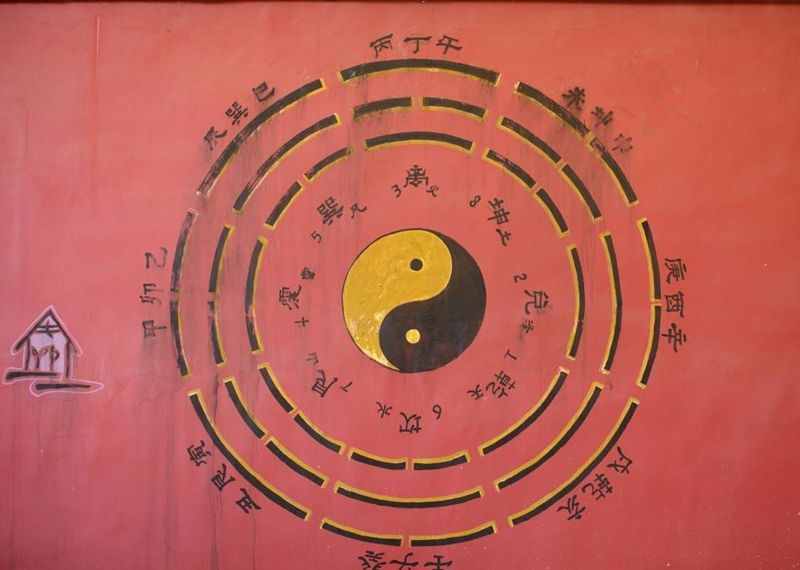 丙丁午
坤
庚酉辛
戌乾亥
壬子癸
丑艮寅
甲卯乙
辰巽巳
3 火
8 坤土
2 兌
乾天
6 坎水
7 艮山
震雷
5 巽风